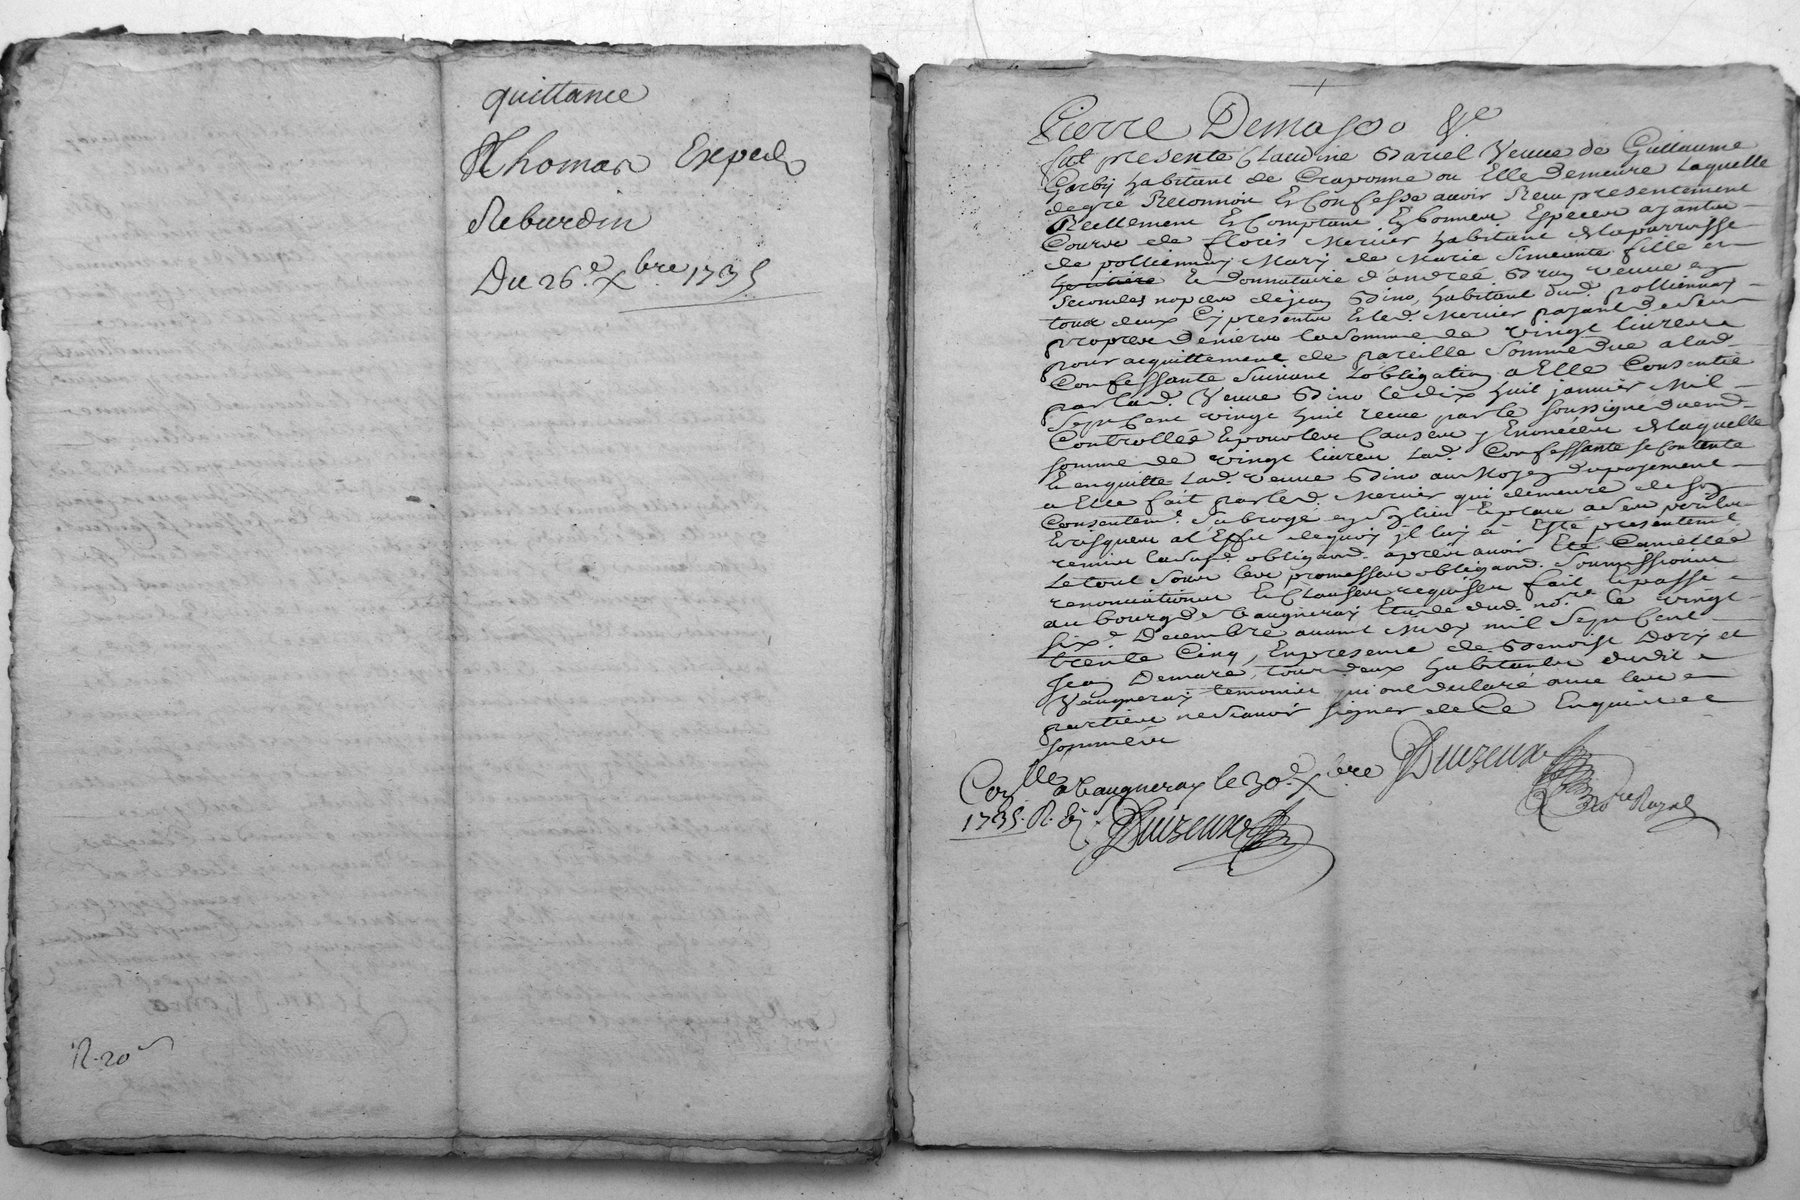 quittance
Thomas Exped.
Reburdin
Du 26.e Xbre 1735
R. 20
Pierre Demasso &c
fut presente Claudine Bariel Veuve de Guillaume
Gorby habitant de Craponne ou Elle demeure Laquelle
de gré Reconnoit Et Confesse avoir Receu presentement
Reellement Et Comptant En bonnes Especes ayantes
Cours de floris Mercier habitant de la parroisse
de pollionnay Mary de Marie Simeante fille et
heritiere Et donnataire d'andreé Bray veuve en
secondes nopces de jean Bino, habitant dud. pollionnay
tous deux Cy presents Et led. Mercier payant de ses
propres deniers la somme de vingt livres
pour acquittement de pareille somme due a lad.
Confessante suivant L'obligation a Elle Consentie
par lad. Veuve Bino le dix huit janvier Mil
Sept Cent vingt huit receue par le soussigné duem.t
Controllée Et pour les Causes y Enoncées De laquelle
somme de vingt livres Lad. Confessante se Contente
Et en quitte Lad. veuve Bino au Moyen du payement
a Elle fait par led. Mercier qui demeure de son
Consentem.t Subrogé en son lieu Et place a ses perils
Et risques a l'Effet de quoy il luy à Esté presentem.t
remise la susd. obligaõn. apres avoir Eté Cancellée
Le tout sous les promesses obligaõns. soumissions
renonciations Et Clauses requises fait Et passé
au bourg de Vaugneray Etude dud. no.re le vingt
six.e Decembre avant Midy mil sept Cent
trente Cinq, En presence de Benoist Dory et
Jean Demare, tous deux habitants dudit
Vaugneray temoins qui ont declaré avec les
parties ne sçavoir signer de Ce Enquis et
sommées
Duizeux
No.re Royal
Con.lle a Vaugneray le 30.e Xbre
1735. R.
Duizeux